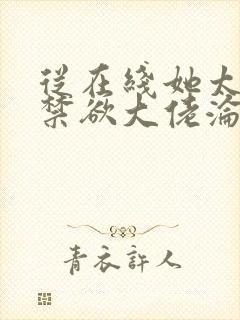 從在綫她太
禁欲大佬淪
青衣許人